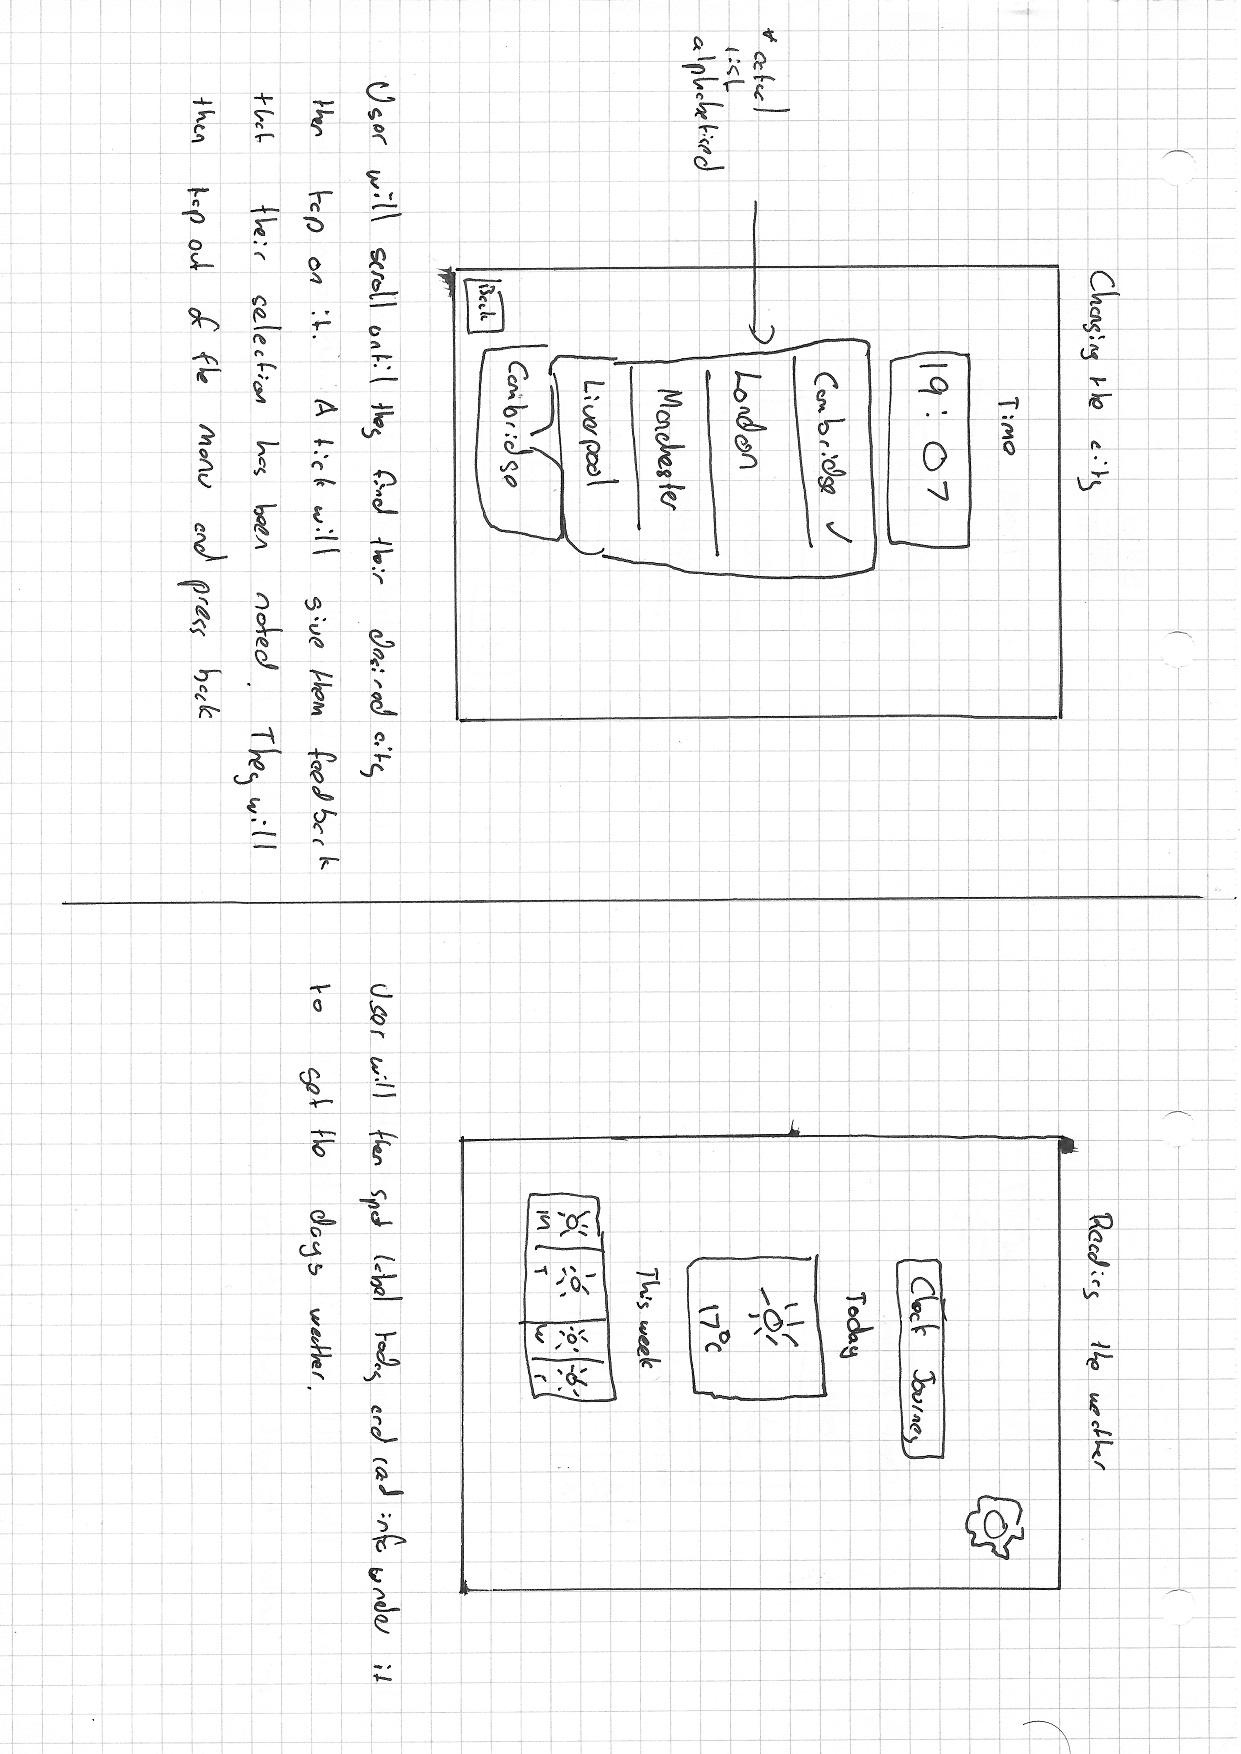 Changing the city
Time
19:07
Cambridge ✓
London
Manchester
Liverpool
Cambridge
Back
* actual
list
alphabetised
User will scroll until they find their desired city
then tap on it. A tick will give them feedback
that their selection has been noted. They will
then tap out of the menu and press back
Reading the weather
Clock Journey
Today
17°C
This week
M T W T
User will then spot label today and read info under it
to get the days weather.